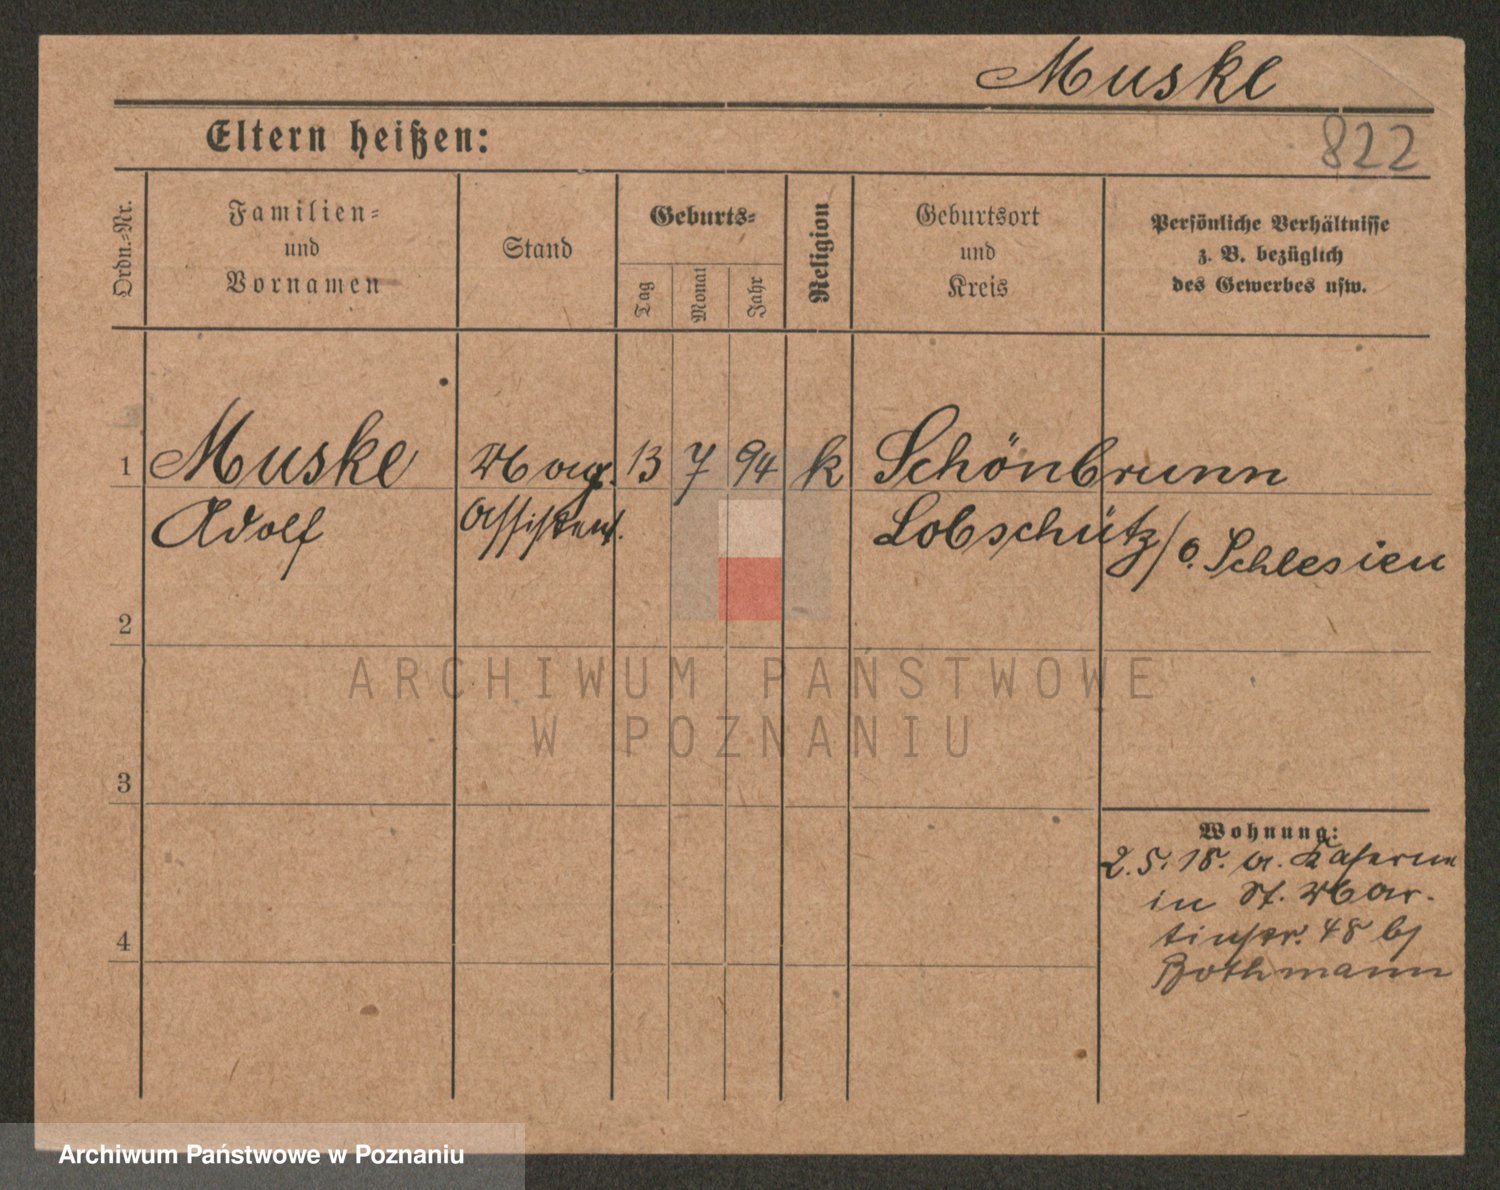 Muske
Eltern heißen:
822
Ordn.-Nr.
Familien-
und
Vornamen
Stand
Geburts-
Tag
Monat
Jahr
Religion
Geburtsort
und
Kreis
Persönliche Verhältnisse
z. B. bezüglich
des Gewerbes usw.
1 Muske Mag. 13 7 94 k Schönbrunn
Adolf Assistent. Lobschütz/O. Schlesien
2
ARCHIWUM PAŃSTWOWE
W POZNANIU
3
Wohnung:
2.5.18. a. Kaserne
in St. Mar-
tinstr. 48 bj
Bothmann
4
Archiwum Państwowe w Poznaniu